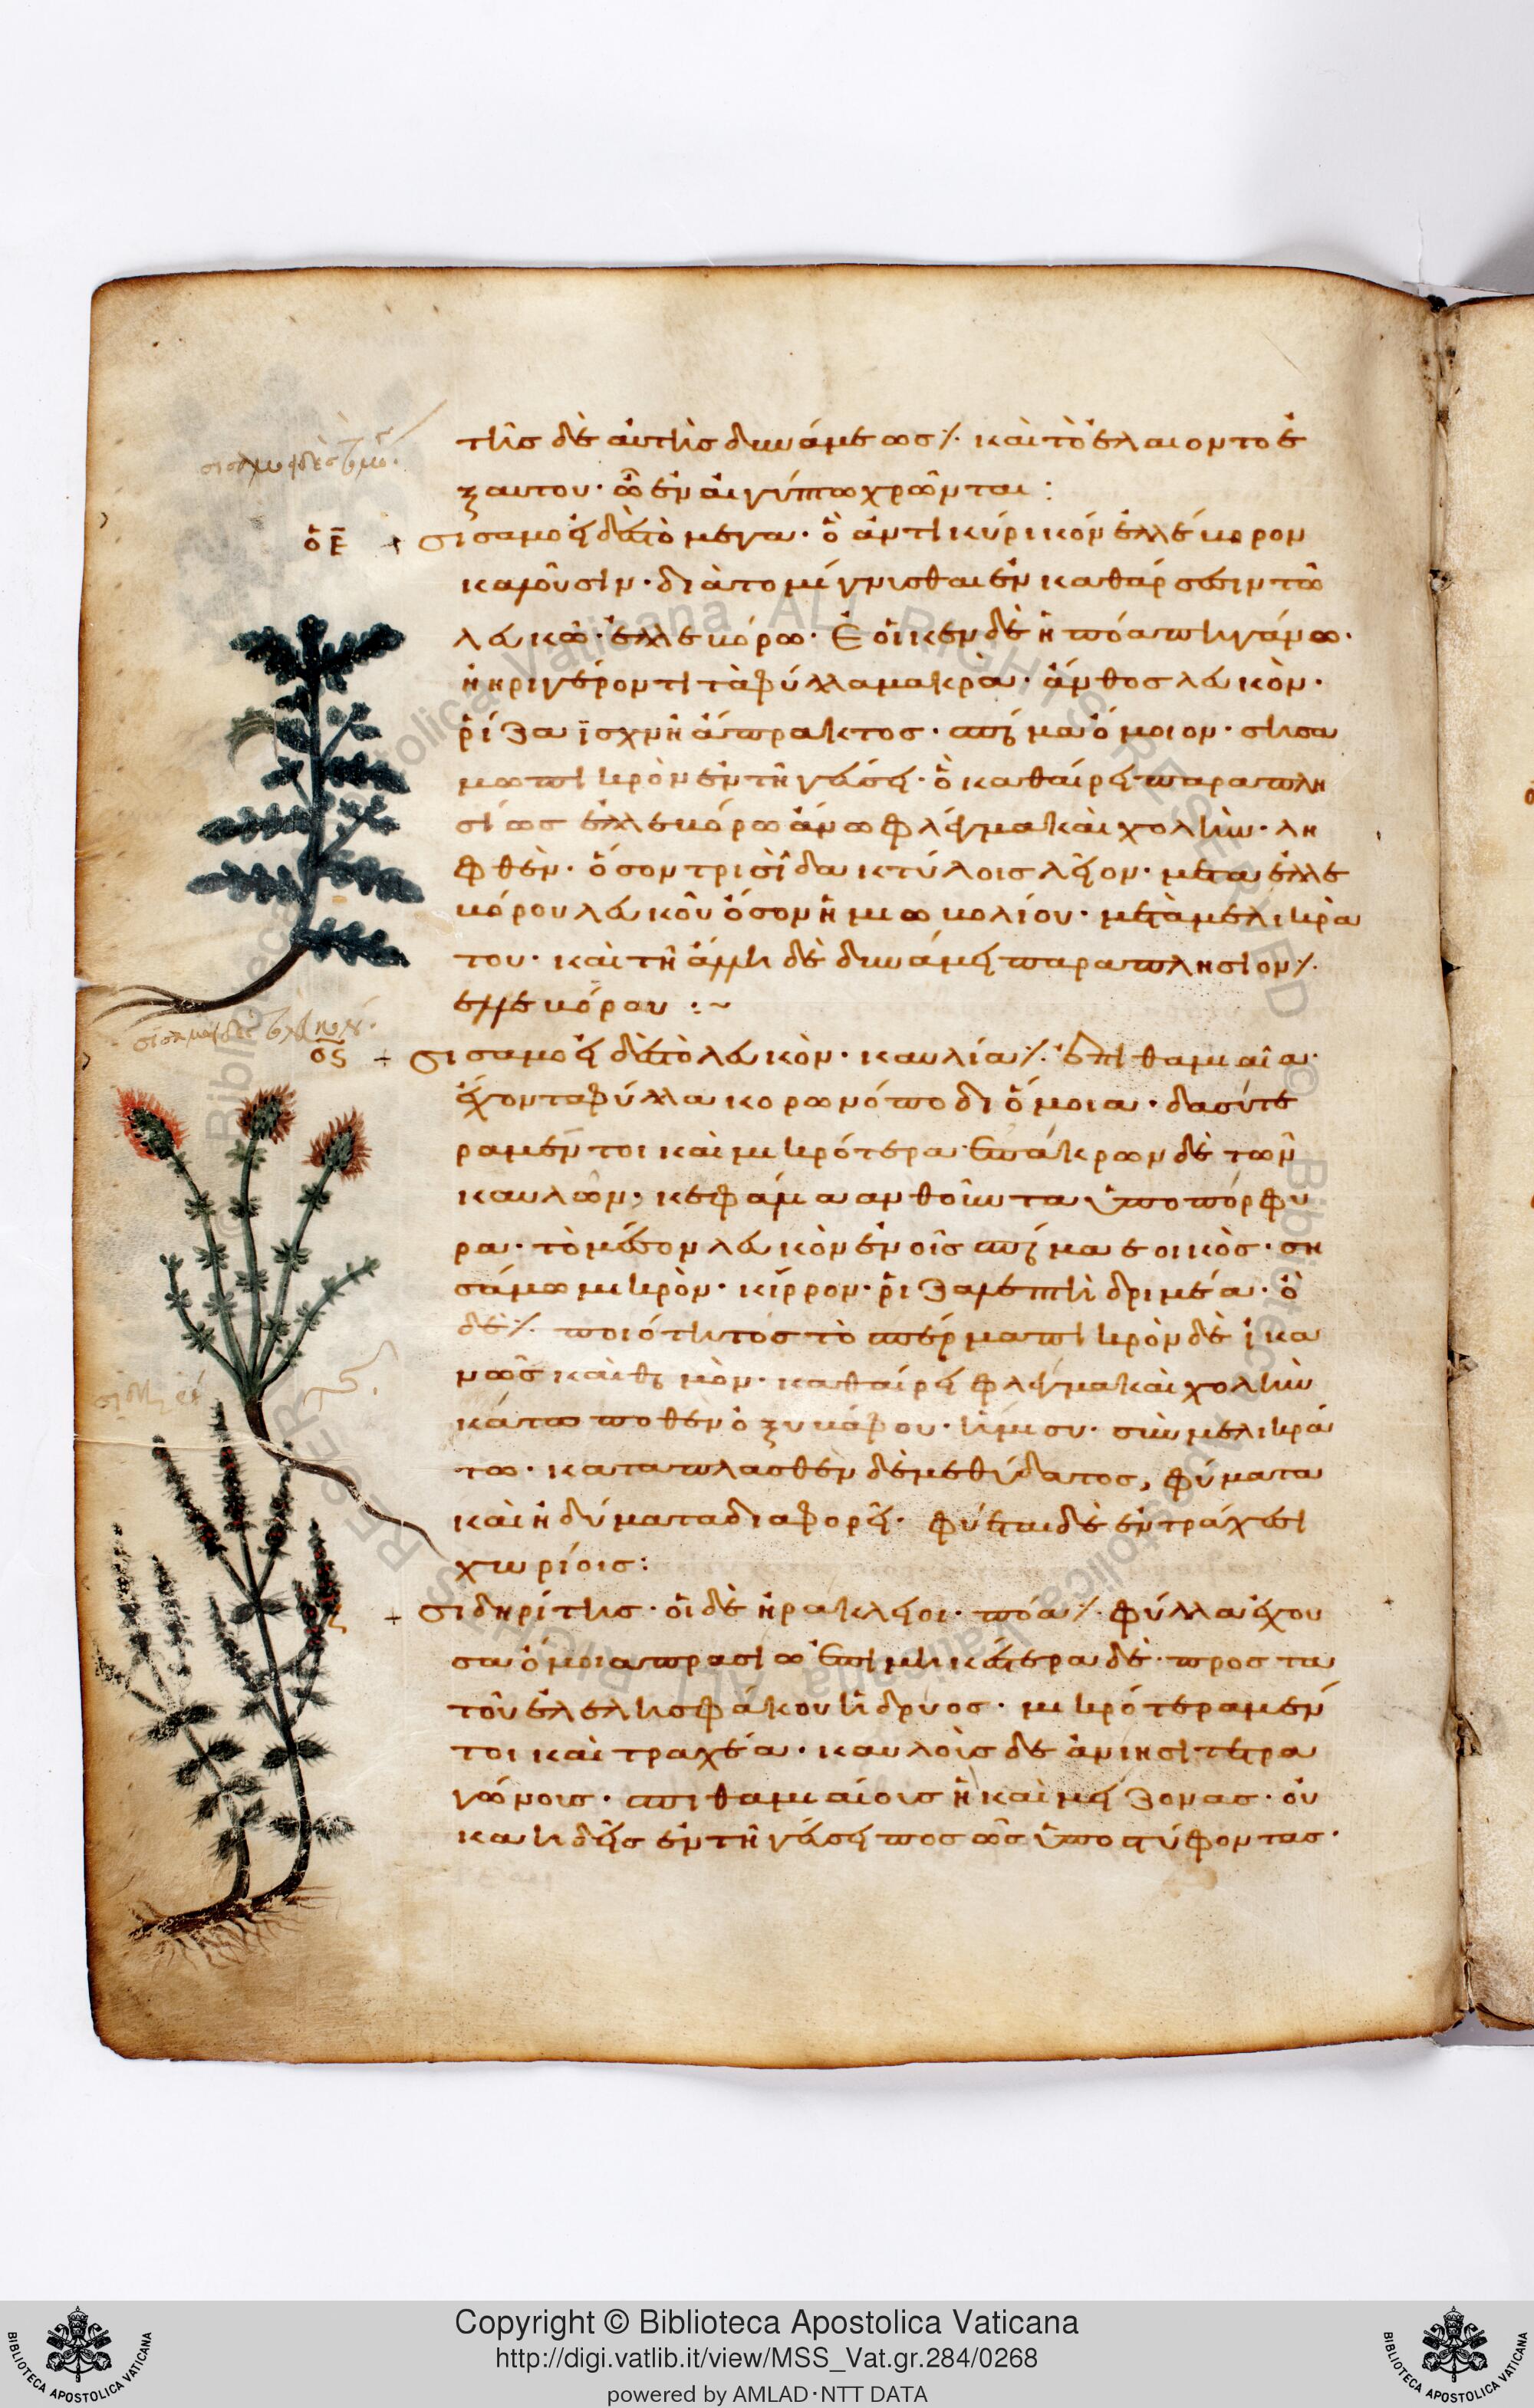 τῆς δὲ αὐτῆς δυνάμεως ⁒ καὶ τὸ ἔλαιον τὸ ἐ
ξ αυτου· ὧ ἐν αἰγύπτω χρῶνται :
ὁε
σισαμοειδὲς τὸ μέγα· ὃ ἀντικύρικὸν ἐλλέβορον
καλοῦσιν· διὰ το μίγνυσθαι ἐν καθάρσεσιν τῶ
λευκῶ· ἐλλεβόρω· Ἐοικεν δὲ ἡ πόα πηγάνω·
ἢ ηριγέροντι τὰ φύλλα μακρὰ· ἄνθος λευκὸν·
ῥίζα ϊσχνὴ ἄπρακτος· σπέρμα ὅμοιον· σησα
μω πικρὸν ἐν τῆ γεύσει· ὃ καθαίρει παραπλη
σίως ἐλλεβόρω ἄνω φλέγμα καὶ χολὴν· λη
φθὲν· ὅσον τρισὶ δακτύλοις λεῖον· μετα ἐλλε
βόρου λευκοῦ ὅσον ἡμιωβολίου· μετὰ μελικρά
του· καὶ τῆ ἄλλη δὲ δυνάμει παραπλησιον ⁒
ελλεβόρου :~
ος
σισαμοειδὲς τὸ λευκὸν· καυλία ⁒ σπιθαμιαῖα·
ἔχοντα φύλλα κορωνόποδι ὅμοια· δασύτε
ρα μέντοι καὶ μικρότερα· ἐπ ἄκρων δὲ τῶν
καυλῶν· κεφάλια ανθοῦντα ὑποπόρφυ
ρα· τὸ μέσον λευκὸν ἐν οἷς σπέρμα εοικὸς· ση
σάμω πικρὸν· κίρρον· ῥιζα λεπτὴ δριμέα· ὁ
δὲ ⁒ ποιότητος τὸ σπέρμα πικρὸν δὲ ἱκα
νῶς καὶ θερμὸν· καθαίρει φλέγμα καὶ χολὴν
κάτω ποθὲν ὀξυβάφου· ἥμισυ· σὺν μελικρά
τω· καταπλασθὲν δὲ μεθ ὕδατος, φύματα
καὶ ηδύματα διαφορεῖ· φύεται δὲ ἐν τραχέσι
χωρίοις:
σιδηρίτης· οἱ δὲ ἡρακλειοι· πόα ⁒ φύλλα ἔχου
σα ὅμοια πρασίω ἐπιμηκέστερα δὲ· προς τα
τοῦ ἐλελησφάκου ἢ δρυος· μικρότερα μέν
τοι καὶ τραχέα· καυλοὺς δὲ ἀνιησὶ τετρα
γώνους· σπιθαμιαίους ἢ καὶ μείζονας· ὀυ
κ αηδεῖς ἐν τῆ γεύσει ποσῶς ὑποστύφοντας·
Copyright © Biblioteca Apostolica Vaticana
http://digi.vatlib.it/view/MSS_Vat.gr.284/0268
powered by AMLAD·NTT DATA